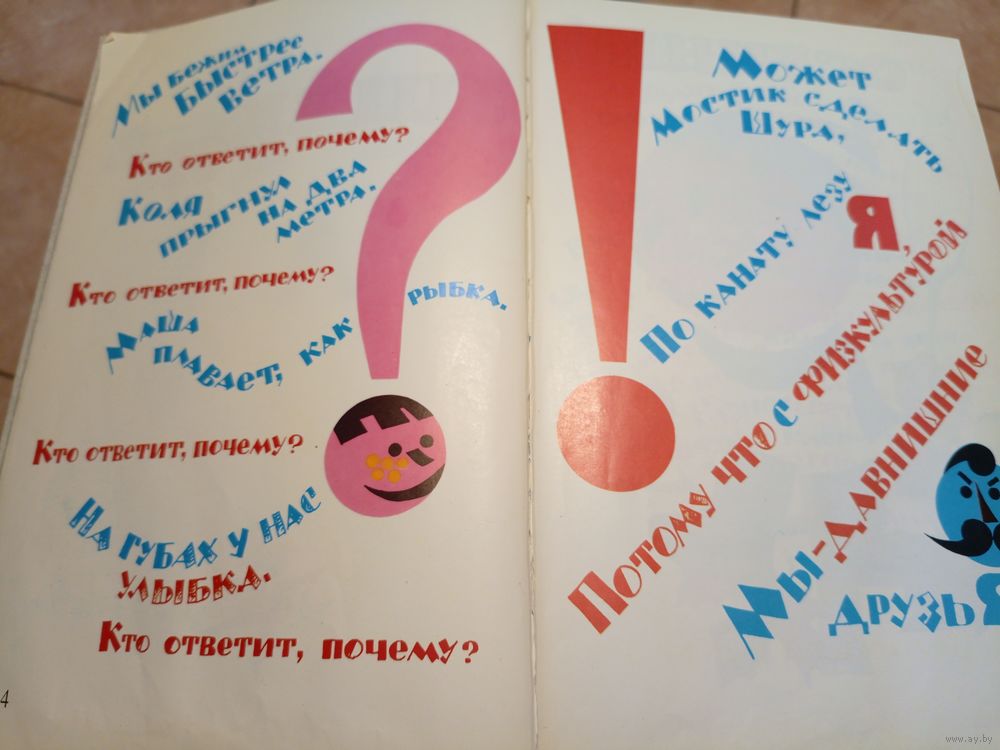 Мы бежим
быстрее
ветра.
Кто ответит, почему?
Коля
прыгнул
на два
метра.
Кто ответит, почему?
Маша
плавает, как рыбка.
Кто ответит, почему?
На губах у нас
улыбка.
Кто ответит, почему?
4
Может
Мостик сделать
Шура,
По канату лезу
Я,
Потому что с физкультурой
Мы-давнишние
друзья
www.ay.by